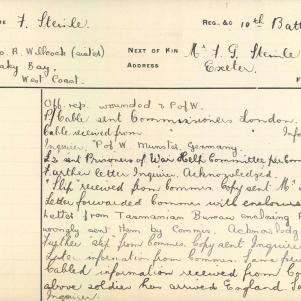 F. Steinle REG. & CO 10th Batt
o R. Willcock (sister) NEXT OF KIN Mr F G Steinle
aky Bay. ADDRESS Exeter.
West Coast.
Off. rep. wounded & P of W.
Cable sent Commissioners London.
Cable received from Inf
Inquirer. P of W. Munster, Germany.
£3 sent Prisoners of War Help Committee per Com
Further letter Inquirer. Acknowledged.
Slip received from Commer. Copy sent Mr
Letter forwarded Commer with enclosure
Letter from Tasmanian Bureau enclosing
wrongly sent them by Commer. Acknowledg
Further slip from Commer. Copy sent Inquirer
information from Commer. Same
Cabled information received from
above soldier has arrived England.
Inquirer.